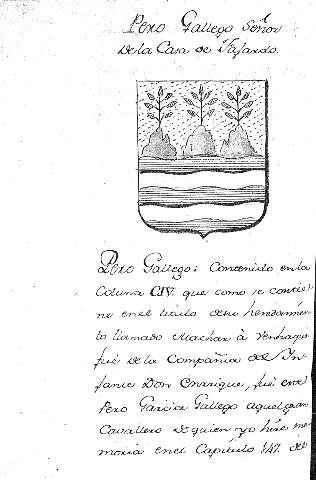 Pero Gallego Señor
de la Casa de Fajardo.
Pero Gallego: Contenido en la
Coluna CIV. que como se contie=
ne en el titulo de su heredamien=
to llamado Machar à
fué de la Compañia del In=
fante Don Enrique, fué este
Pero Garcia Gallego aquel gran
Cavallero de quien yo hize me=
moria en el Capitulo 147. del